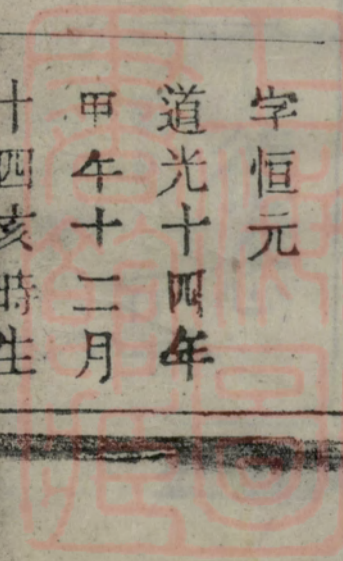 字恒元
道光十四年
甲午十二月
十四亥時生